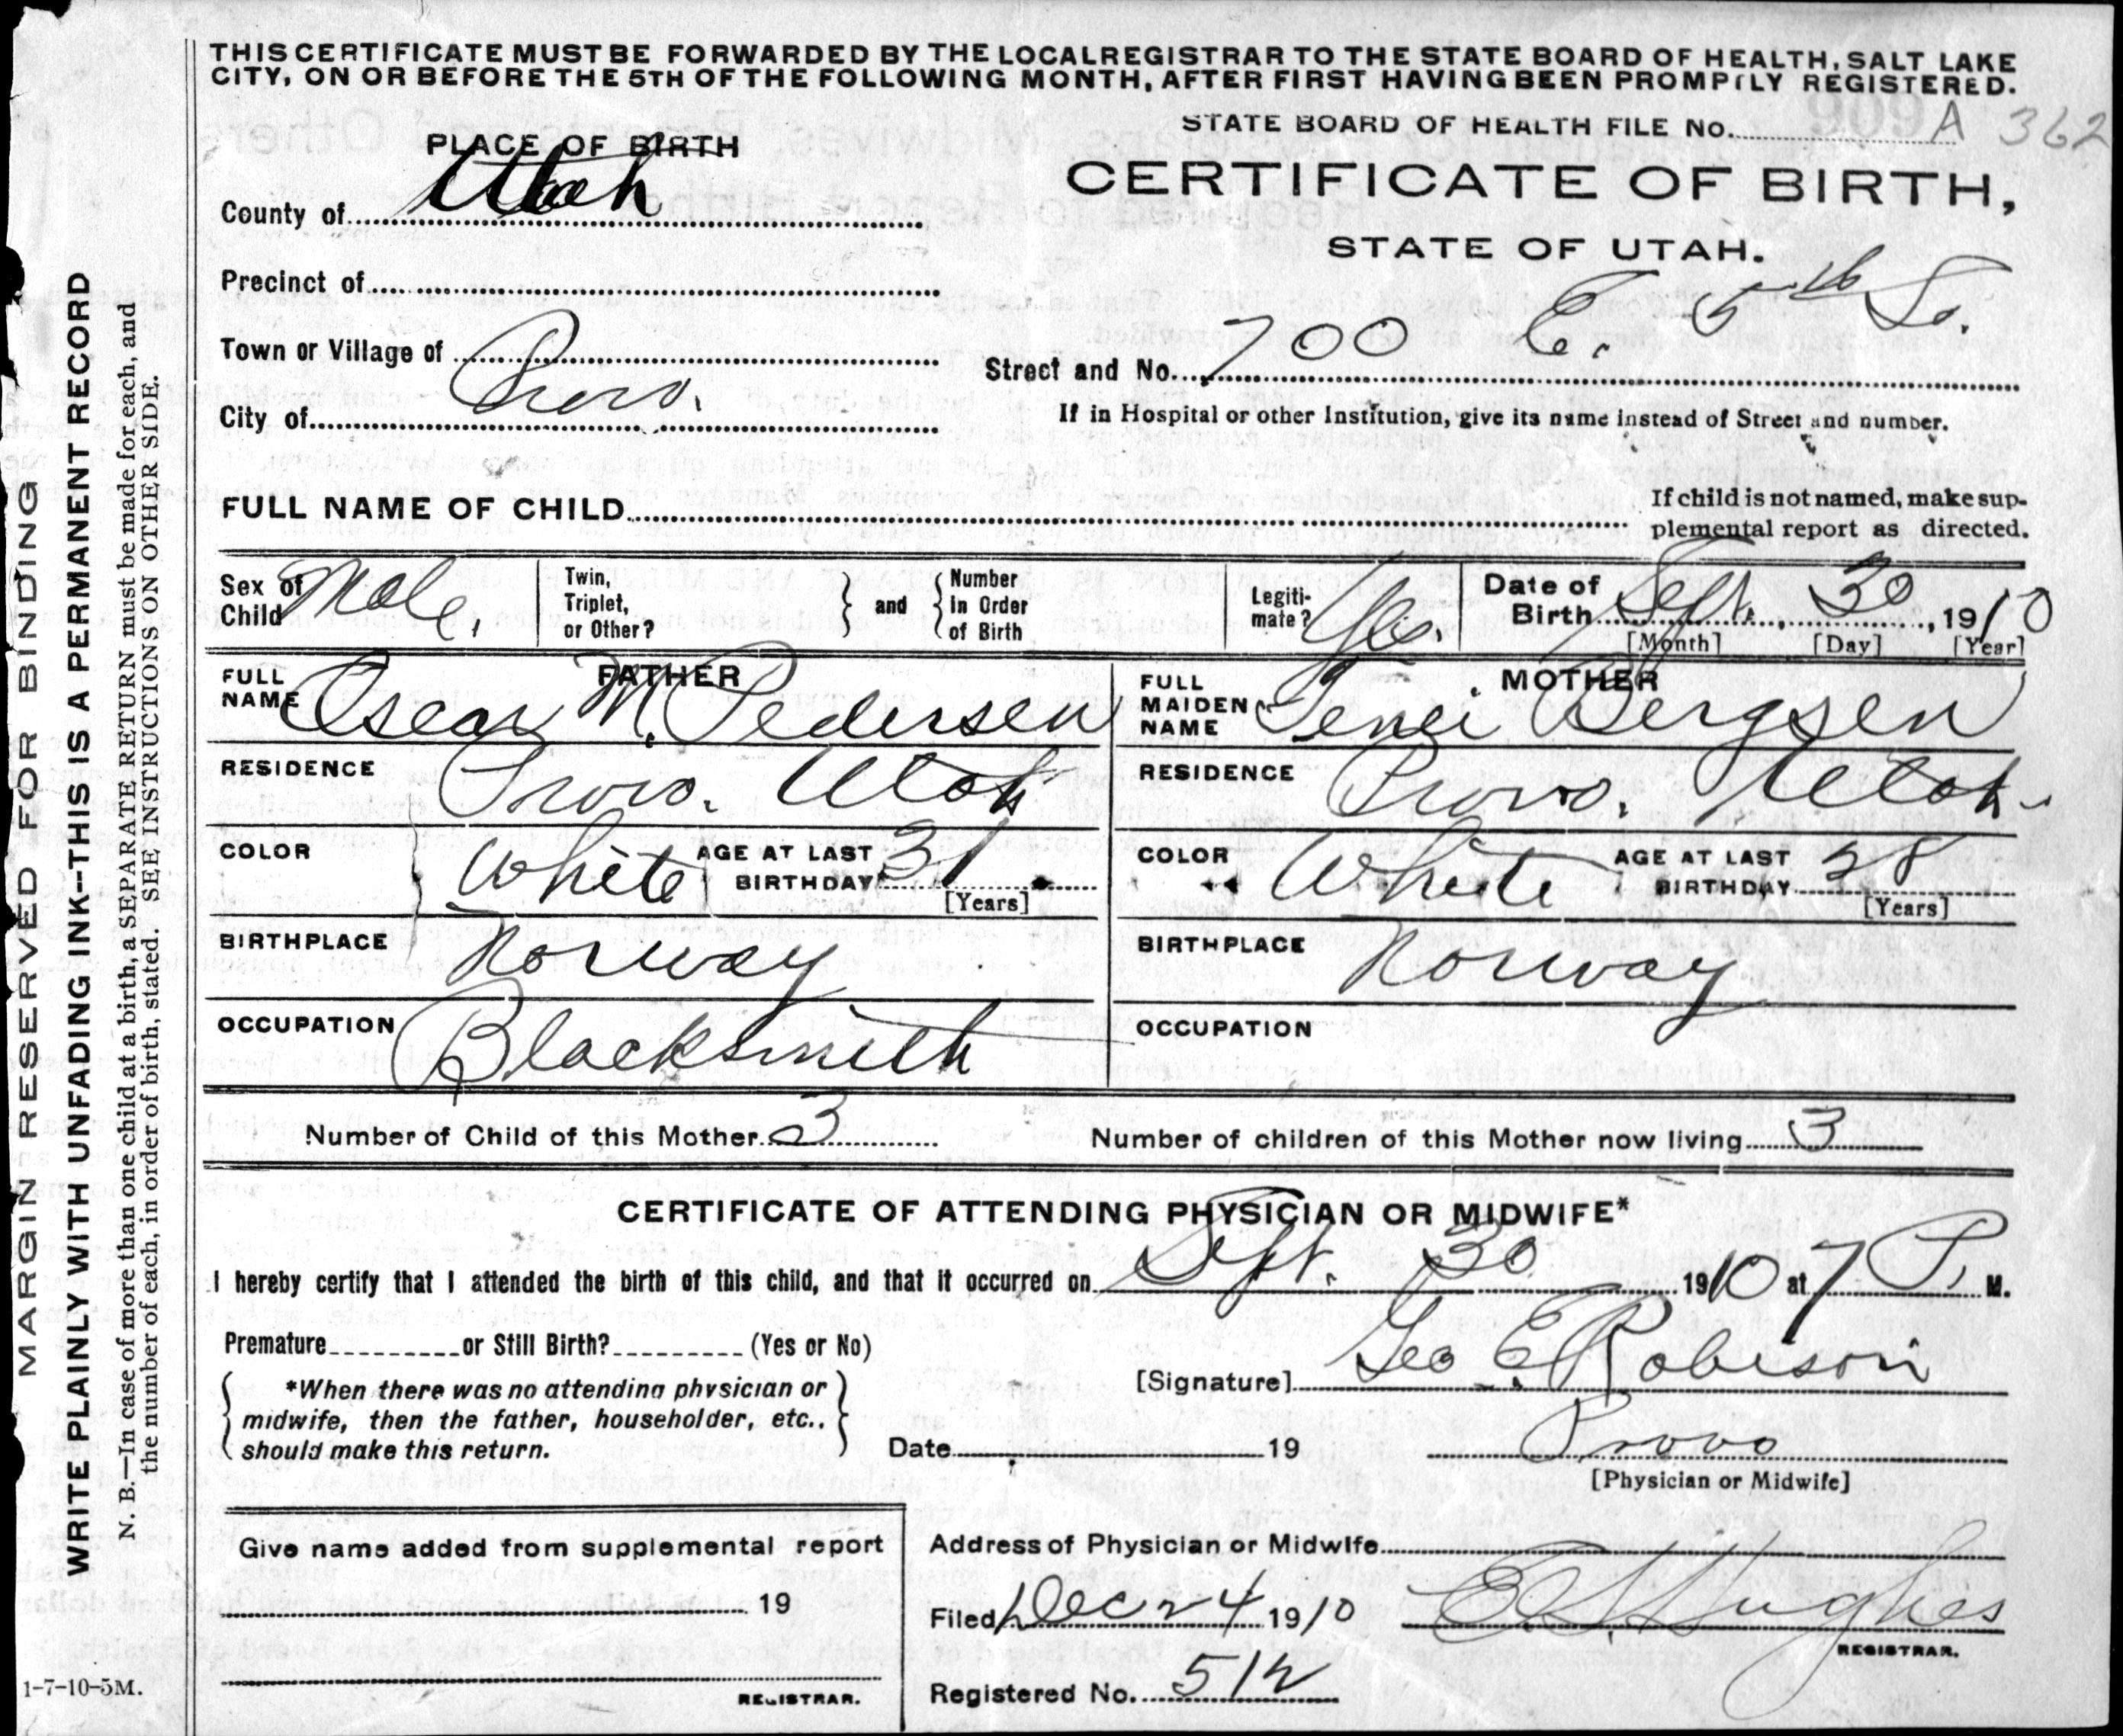 THIS CERTIFICATE MUST BE FORWARDED BY THE LOCAL REGISTRAR TO THE STATE BOARD OF HEALTH, SALT LAKE
CITY, ON OR BEFORE THE 5TH OF THE FOLLOWING MONTH, AFTER FIRST HAVING BEEN PROMPTLY REGISTERED.
STATE BOARD OF HEALTH FILE No. A 362
PLACE OF BIRTH
CERTIFICATE OF BIRTH,
STATE OF UTAH.
County of Utah
Precinct of
Town or Village of Provo.
City of
Street and No. 700 E. 5th So.
If in Hospital or other Institution, give its name instead of Street and number.
FULL NAME OF CHILD
If child is not named, make sup-
plemental report as directed.
Sex of Child Male.
Twin, Triplet, or Other?
and
Number in Order of Birth
Legiti-mate? Yes.
Date of Birth Sept. 30, 1910
[Month] [Day] [Year]
FATHER
FULL NAME Oscar M. Pedersen
RESIDENCE Provo. Utah
COLOR White AGE AT LAST BIRTHDAY 31
[Years]
BIRTHPLACE Norway
OCCUPATION Blacksmith
MOTHER
FULL MAIDEN NAME Bergsen
RESIDENCE Provo. Utah
COLOR White AGE AT LAST BIRTHDAY 28
[Years]
BIRTHPLACE Norway
OCCUPATION
Number of Child of this Mother 3
Number of children of this Mother now living 3
CERTIFICATE OF ATTENDING PHYSICIAN OR MIDWIFE*
I hereby certify that I attended the birth of this child, and that it occurred on Sept. 30 1910 at 7 P. M.
Premature or Still Birth? (Yes or No)
*When there was no attending physician or
midwife, then the father, householder, etc.,
should make this return.
[Signature] Geo E. Robison
Date 19
Provo
[Physician or Midwife]
Give name added from supplemental report
19
REGISTRAR.
Address of Physician or Midwife
Filed Dec 24 1910 Hughes
REGISTRAR.
Registered No. 512
MARGIN RESERVED FOR BINDING
WRITE PLAINLY WITH UNFADING INK--THIS IS A PERMANENT RECORD
N. B.—In case of more than one child at a birth, a SEPARATE RETURN must be made for each, and
the number of each, in order of birth, stated. SEE INSTRUCTIONS ON OTHER SIDE.
1-7-10-5M.